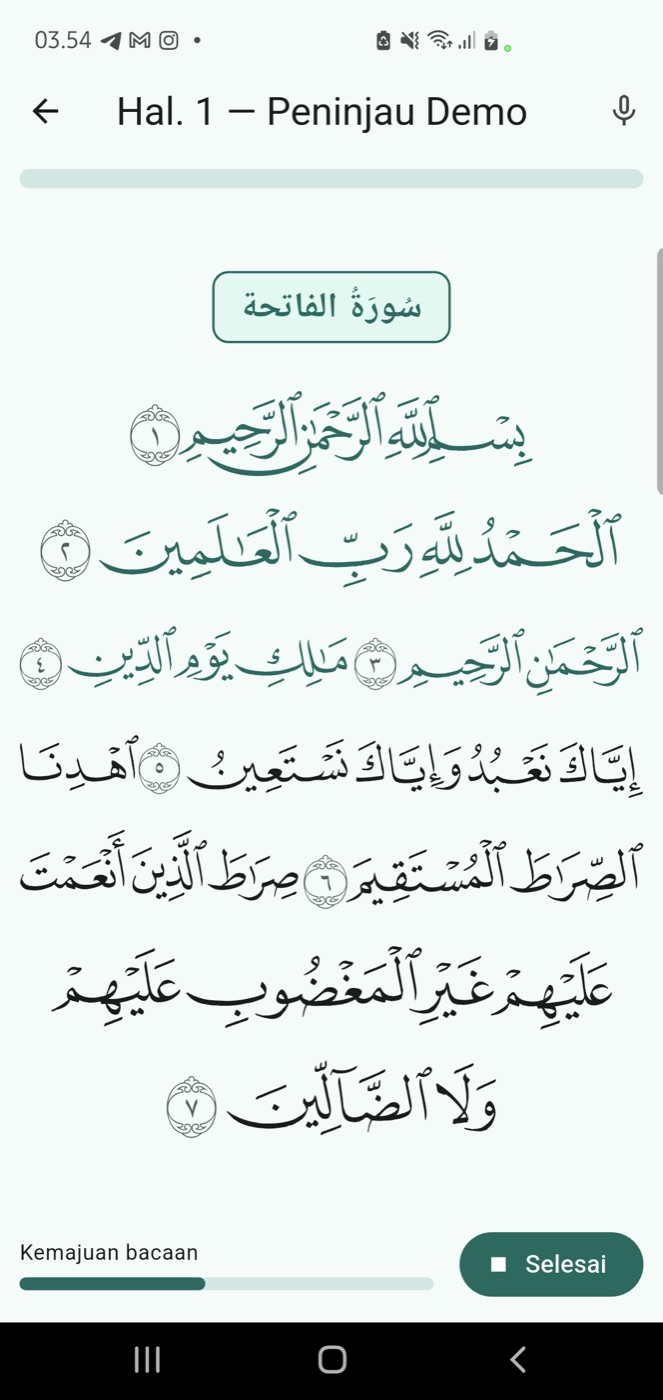 03.54
Hal. 1 — Peninjau Demo
سُورَةُ الفاتحة
بِسْمِ ٱللَّهِ ٱلرَّحْمَٰنِ ٱلرَّحِيمِ ١
ٱلْحَمْدُ لِلَّهِ رَبِّ ٱلْعَٰلَمِينَ ٢
ٱلرَّحْمَٰنِ ٱلرَّحِيمِ ٣ مَٰلِكِ يَوْمِ ٱلدِّينِ ٤
إِيَّاكَ نَعْبُدُ وَإِيَّاكَ نَسْتَعِينُ ٥ ٱهْدِنَا
ٱلصِّرَٰطَ ٱلْمُسْتَقِيمَ ٦ صِرَٰطَ ٱلَّذِينَ أَنْعَمْتَ
عَلَيْهِمْ غَيْرِ ٱلْمَغْضُوبِ عَلَيْهِمْ
وَلَا ٱلضَّآلِّينَ ٧
Kemajuan bacaan
Selesai